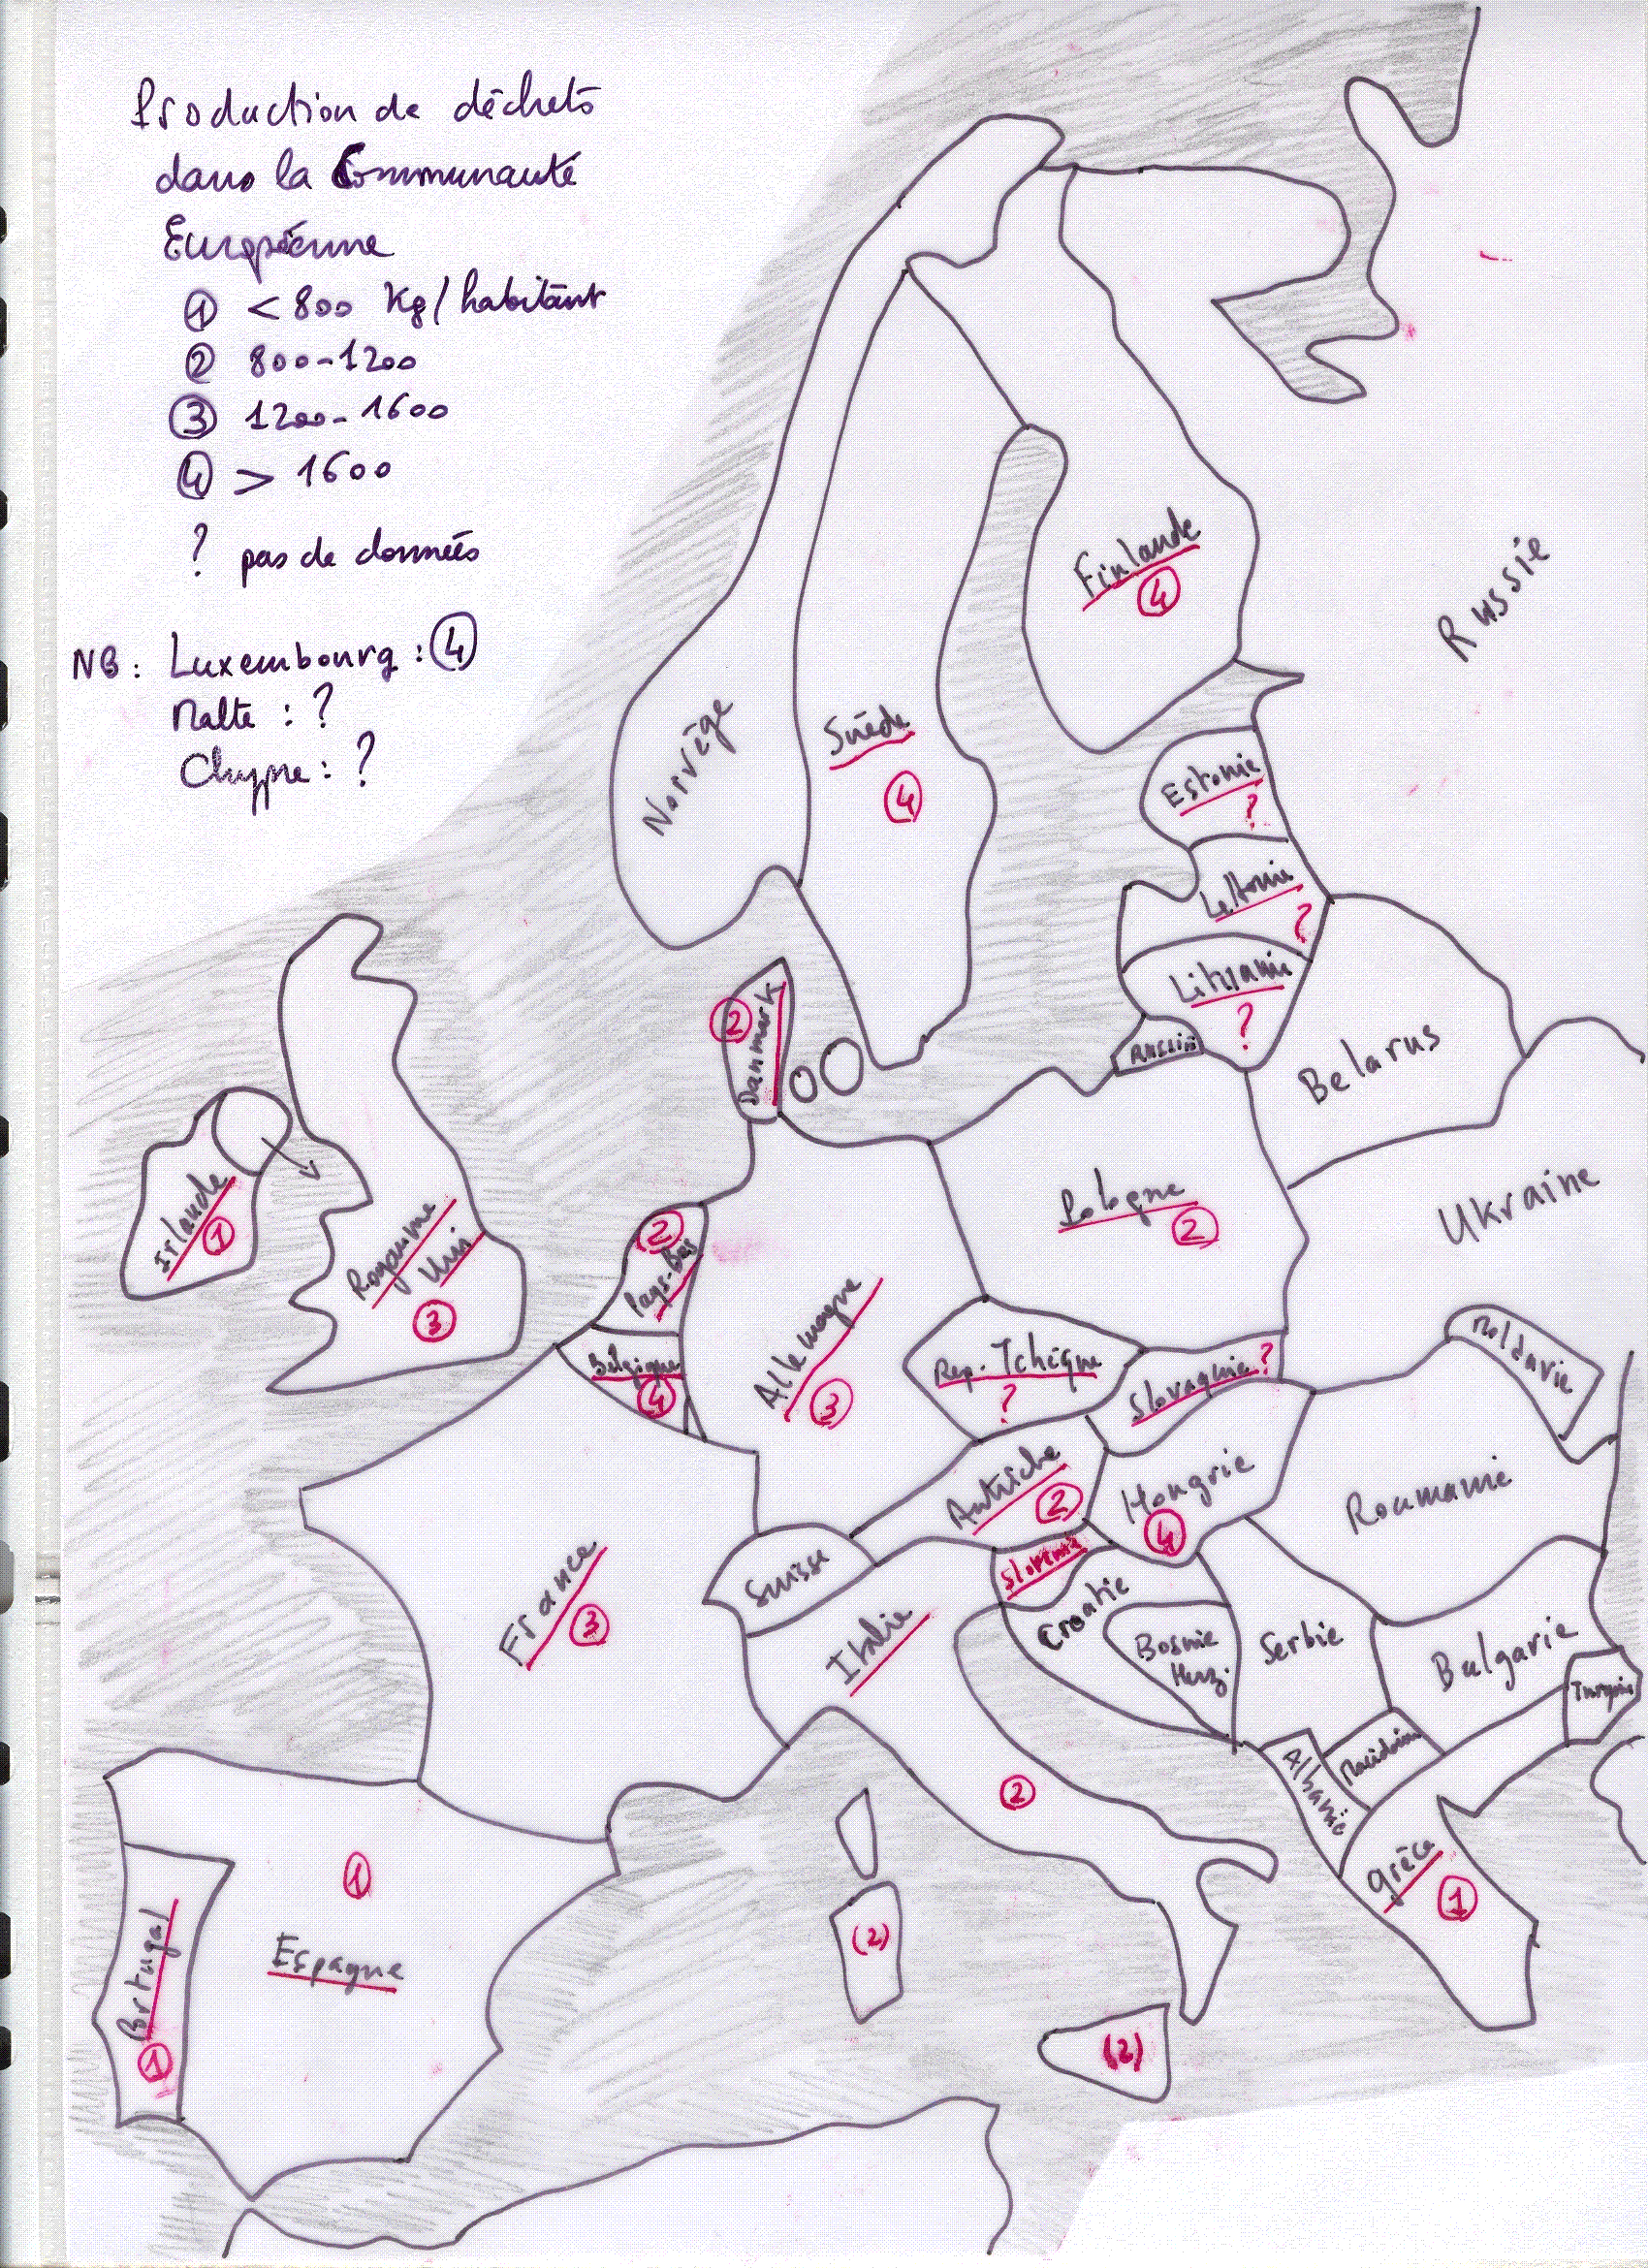 Production de déchets
dans la Communauté
Européenne
① < 800 Kg/habitant
② 800-1200
③ 1200-1600
④ > 1600
? pas de données
NB: Luxembourg: ④
Malte: ?
Chypre: ?
Finlande
④
Russie
Norvège
Suède
④
Estonie
?
Lettonie
?
Lituanie
?
Russie
Belarus
② Danmark
Irlande
①
Royaume
Uni
③
②
Pays-Bas
Belgique
④
Allemagne
③
Pologne
②
Ukraine
Rep. Tchèque
?
Slovaquie ?
Moldavie
Autriche
②
Hongrie
④
Roumanie
France
③
Suisse
Slovénie
Italie
②
Croatie
Bosnie
Herz.
Serbie
Bulgarie
Turquie
Albanie
Macédoine
Grèce
①
Portugal
①
①
Espagne
(2)
(2)